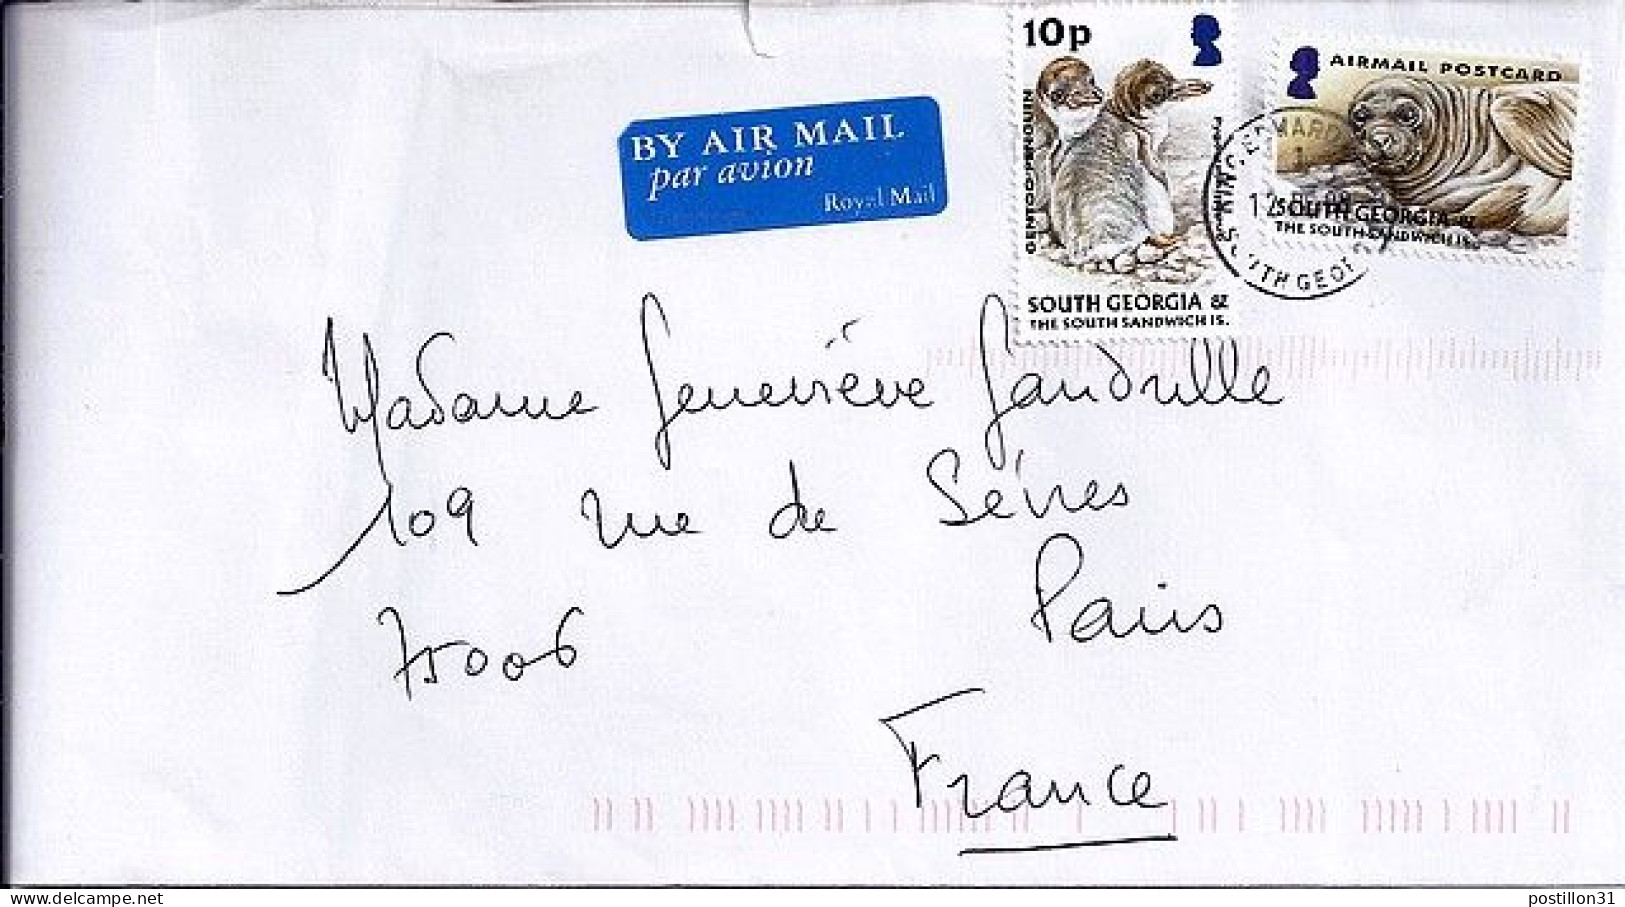 10p
GENTOO PENGUIN
SOUTH GEORGIA &
THE SOUTH SANDWICH IS.
AIRMAIL POSTCARD
SOUTH GEORGIA &
THE SOUTH SANDWICH IS.
KING EDWARD
12
SOUTH GEOR
BY AIR MAIL
par avion
Royal Mail
Madame Geneviève Gandrille
109 rue de Sèvres
75006 Paris
France
postillon31